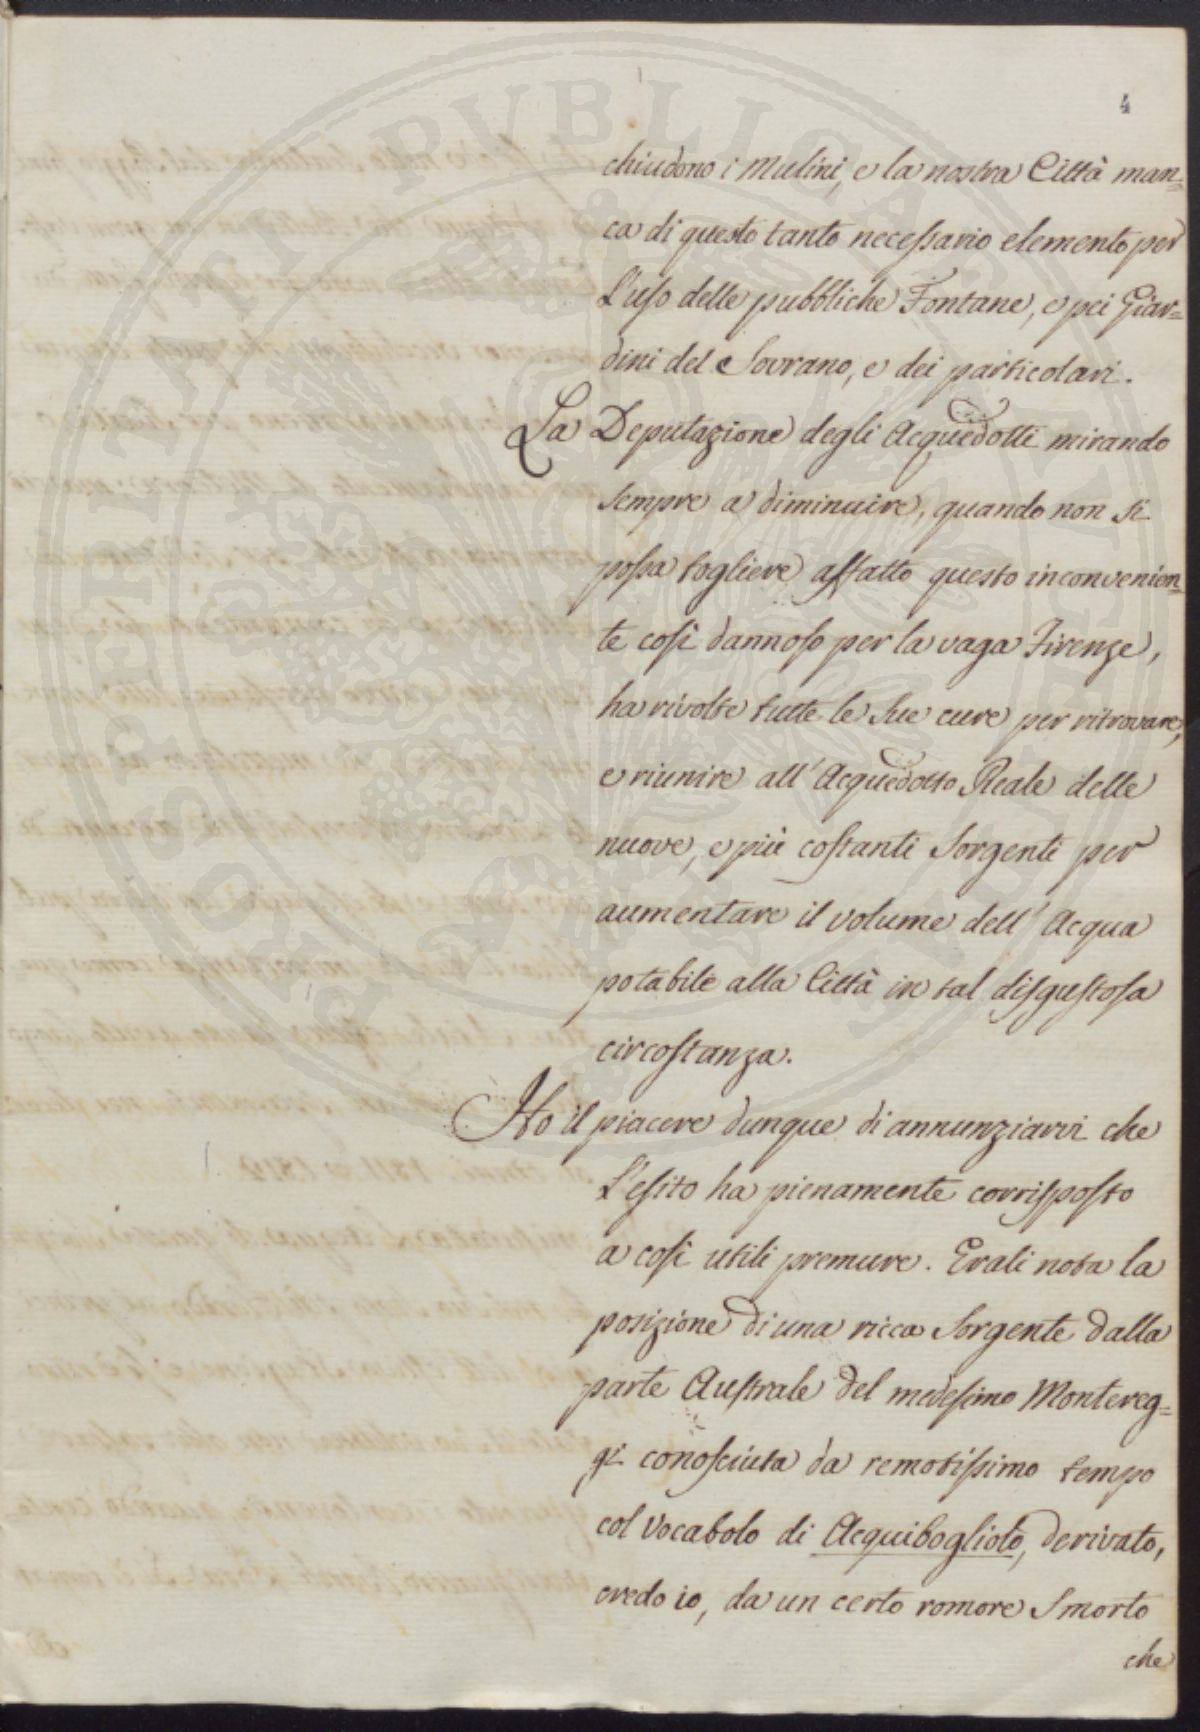 4
chiudono i Mulini, e la nostra Città man=
ca di questo tanto necessario elemento per
l'uso delle pubbliche Fontane, e pei Giar=
dini del Sovrano, e dei particolari.
La Deputazione degli Acquedotti mirando
sempre a diminuire, quando non si
possa togliere affatto questo inconvenien=
te così dannoso per la vaga Firenze,
ha rivolte tutte le sue cure per ritrovare,
e riunire all'Acquedotto Reale delle
nuove, e più costanti Sorgenti per
aumentare il volume dell'Acqua
potabile alla Città in tal disgustosa
circostanza.
Ho il piacere dunque di annunziarvi che
l'esito ha pienamente corrisposto
a così utili premure. Erali nota la
posizione di una ricca Sorgente dalla
parte Australe del medesimo Montereg=
gi conosciuta da remotissimo tempo
col vocabolo di Acquibogliolo, derivato,
credo io, da un certo romore smorto
che
PROSPERITATI PUBLICAE AUGENDAE